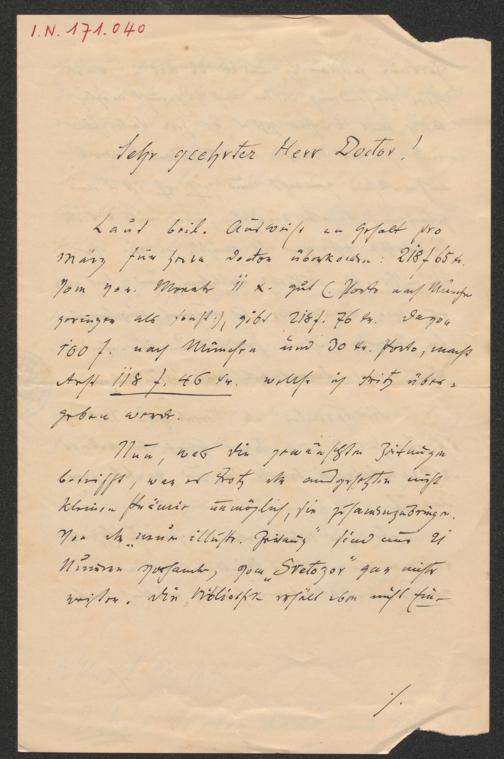 I.N. 171.040
Sehr geehrter Herr Doctor!
Laut beil. Ausweise an Gehalt pro
März für Herrn Doctor überkommen: 218 f 65 kr.
Vom vor. Monate 11 x. gut (Porto nach München
geringer als sonst:), gibt 218 f. 76 kr. Davon
100 f. nach München und 30 kr. Porto, macht
Rest 118 f. 46 kr. welche ich Fritz über-
geben werde.
Nun, was die gewünschten Zeitungen
betrifft, war es trotz der ausgesetzten nicht
kleinen Prämie unmöglich, sie zusammenzubringen.
Von der „neuen illustr. Zeitung" sind nur 21
Nummern vorhanden, vom „Svetozor" gar nichts
. Die Bibliothek erhält eben nicht Ein-
./.